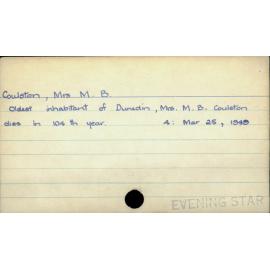 Coulston, Mrs M. B.
Oldest inhabitant of Dunedin, Mrs. M. B. Coulston
dies in 104 th year. 4: Mar 25, 1948
EVENING STAR